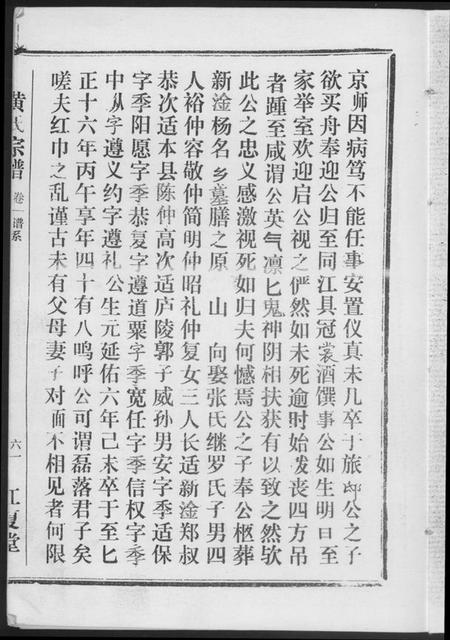 京师因病笃不能任事安置仪真未几卒于旅邸公之子
欲买舟奉迎公归至同江县冠裳酒馔事公如生明日至
家举室欢迎启公视之俨然如未死逾时始发丧四方吊
者踵至咸谓公英气凛匕鬼神阴相扶获有以致之然欤
此公之忠义感激视死如归夫何憾焉公之子奉公柩葬
新淦杨名乡墓膳之原　山　向娶张氏继罗氏子男四
人裕仲容敬仲简明仲昭礼仲复女三人长适新淦郑叔
恭次适本县陈仲高次适庐陵郭子威孙男安字季适保
字季阳愿字季恭复字遵道粟字季宽任字季信权字季
中从字遵义约字遵礼公生元延佑六年己未卒于至匕
正十六年丙午享年四十有八呜呼公可谓磊落君子矣
嗟夫红巾之乱谨古未有父母妻子对面不相见者何限
黄氏宗谱
卷一
谱系
六一
江夏堂